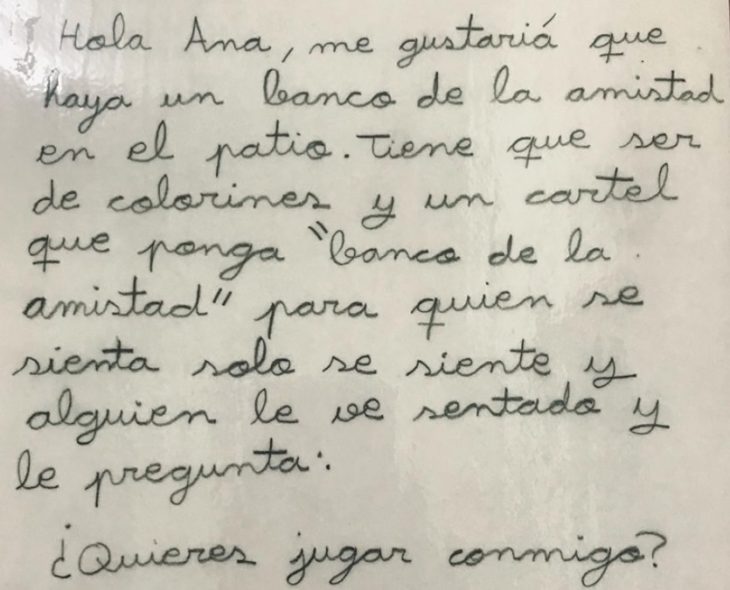 Hola Ana, me gustariá que
haya un banco de la amistad
en el patio. Tiene que ser
de colorines y un cartel
que ponga "banco de la
amistad" para quien se
sienta solo se siente y
alguien le ve sentado y
le pregunta:
¿Quieres jugar conmigo?